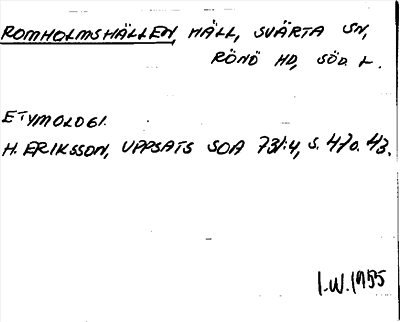 ROMHOLMSHÄLLEN, HÄLL, SVÄRTA SN,
RÖNÖ HD, SÖD. L.
ETYMOLOGI.
H. ERIKSSON, UPPSATS SOA 731:4, S. 47 o. 43.
I.W. 1955